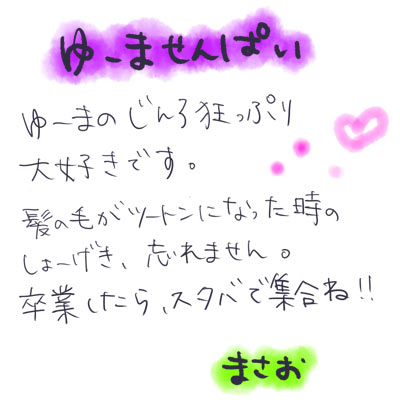 ゆーませんぱい
ゆーまのじんろ狂っぷり
大好きです。
髪の毛がツートンになった時の
しょーげき、忘れません。
卒業したら、スタバで集合ね!!
まさお